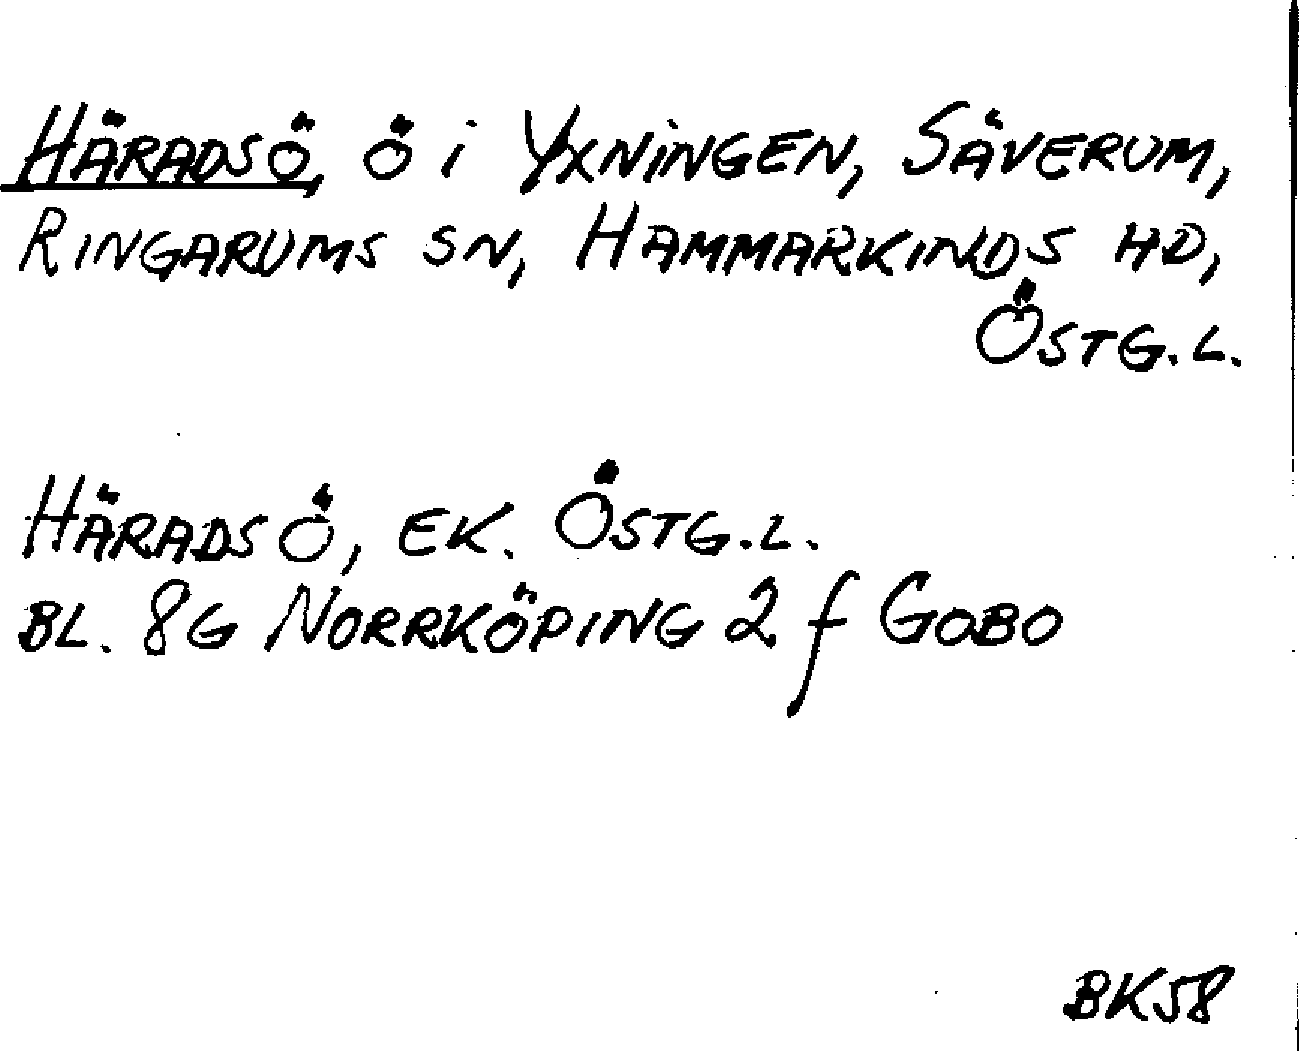 HÄRADSÖ, Ö i YXNINGEN, SÄVERUM,
RINGARUMS SN, HAMMARKINDS HD,
ÖSTG.L.
HÄRADSÖ, EK. ÖSTG.L.
BL. 8G NORRKÖPING 2 f GOBO
BK58